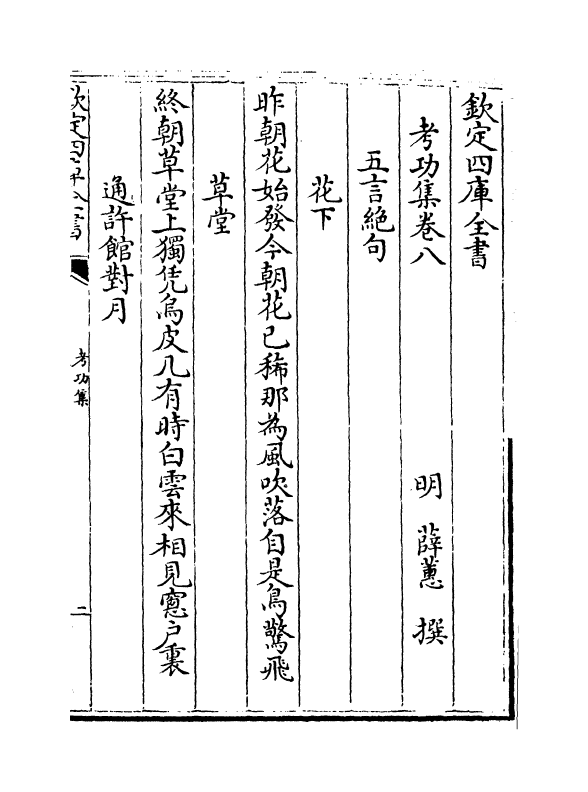 欽定四庫全書
考功集卷八
明 薛蕙 撰
五言絕句
花下
昨朝花始發今朝花已稀那為風吹落自是鳥驚飛
草堂
終朝草堂上獨凭烏皮几有時白雲來相見窻户裏
通許館對月
欽定四庫全書
考功集